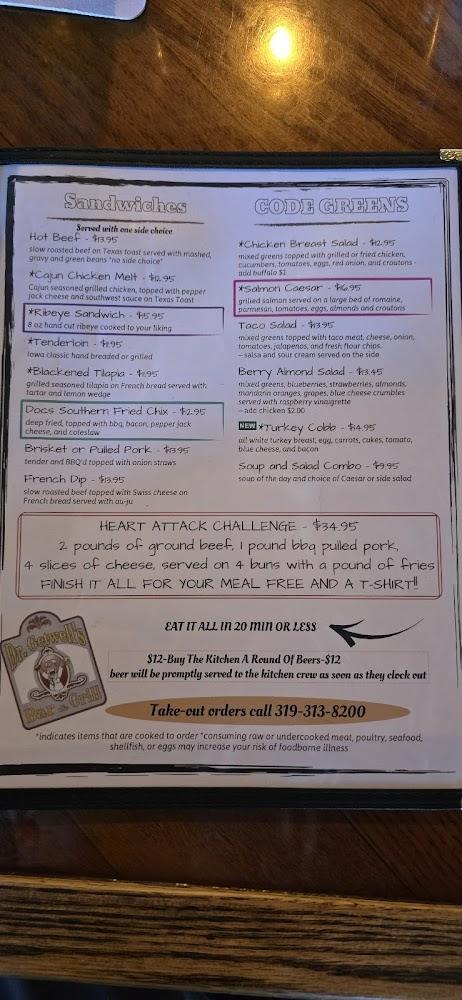 Sandwiches
Served with one side choice
Hot Beef - $13.95
slow roasted beef on Texas toast served with mashed,
gravy and green beans *no side choice*
*Cajun Chicken Melt - $12.95
Cajun seasoned grilled chicken, topped with pepper
jack cheese and southwest sauce on Texas Toast
*Ribeye Sandwich - $15.95
8 oz hand cut ribeye cooked to your liking
*Tenderloin - $11.95
Iowa classic hand breaded or grilled
*Blackened Tilapia - $11.95
grilled seasoned tilapia on French bread served with
tartar and lemon wedge
Docs Southern Fried Chix - $12.95
deep fried, topped with bbq, bacon, pepper jack
cheese, and coleslaw
Brisket or Pulled Pork - $13.95
tender and BBQ'd topped with onion straws
French Dip - $13.95
slow roasted beef topped with Swiss cheese on
French bread served with au-ju
CODE GREENS
*Chicken Breast Salad - $12.95
mixed greens topped with grilled or fried chicken,
cucumbers, tomatoes, eggs, red onion, and croutons -
add buffalo $1
*Salmon Caesar - $16.95
grilled salmon served on a large bed of romaine,
parmesan, tomatoes, eggs, almonds and croutons
Taco Salad - $13.95
mixed greens topped with taco meat, cheese, onion,
tomatoes, jalapenos, and fresh flour chips.
- salsa and sour cream served on the side
Berry Almond Salad - $13.45
mixed greens, blueberries, strawberries, almonds,
mandarin oranges, grapes, blue cheese crumbles
served with raspberry vinaigrette
- add chicken $2.00
NEW *Turkey Cobb - $14.95
all white turkey breast, egg, carrots, cukes, tomato,
blue cheese, and bacon
Soup and Salad Combo - $9.95
soup of the day and choice of Caesar or side salad
HEART ATTACK CHALLENGE - $34.95
2 pounds of ground beef, 1 pound bbq pulled pork,
4 slices of cheese, served on 4 buns with a pound of fries
FINISH IT ALL FOR YOUR MEAL FREE AND A T-SHIRT!!
EAT IT ALL IN 20 MIN OR LESS
$12-Buy The Kitchen A Round Of Beers-$12
beer will be promptly served to the kitchen crew as soon as they clock out
Dr. Getwell's
Bar & Grill
Take-out orders call 319-313-8200
*indicates items that are cooked to order *consuming raw or undercooked meat, poultry, seafood,
shellfish, or eggs may increase your risk of foodborne illness